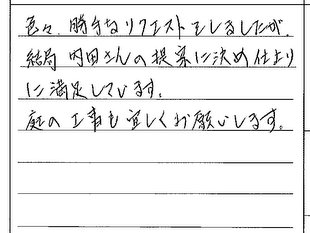 色々、勝手なリクエストをしましたが、
結局内田さんの提案に決め仕上り
に満足しています。
庭の工事も宜しくお願いします。